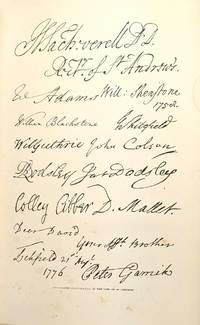 H Sacheverell D.D.
R.V. of St Andrew's
W Adams Will: Shenstone
1758.
William Blackstone G Whitfield
Will Guthrie John Colson
R Dodsley Jas Dodsley
Colley Cibber D. Mallet.
Dear David
Your Afft. Brother
Lichfield 21st
1776 Peter Garrick